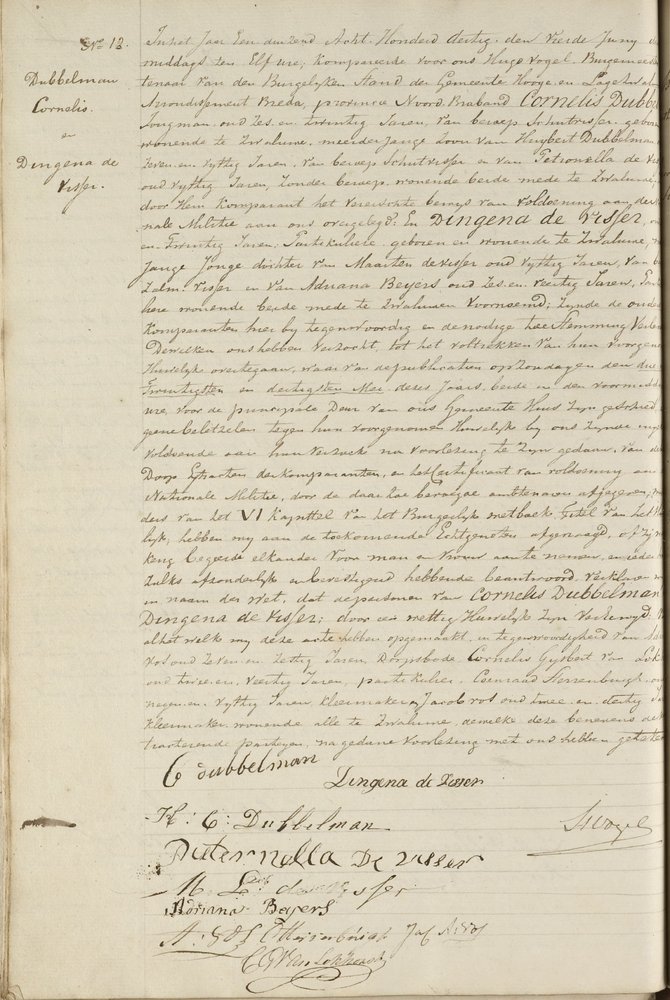 No 12.
Dubbelman
Cornelis.
en
Dingena de
Visser.
In het Jaar Een duizend Acht Honderd dertig. den Vierde Juny
middags ten Elf ure, kompareerde voor ons Hugo Vogel Burgemees
tenaar van den Burgelyken Stand der Gemeente Hooge en Lage
Arrondissement Breda, provincie Noord Braband Cornelis Dubbe
Jongman, oud Zes en twintig Jaren, van beroep Schutvisser, gebor
wonende te Zwaluwe, meerderjarige Zoon van Huybert Dubbelman
Zeven en Vyftig Jaren, van beroep Schutvisser en van Petronella de Vis
oud Vyftig Jaren, Zonder beroep, wonende beide mede te Zwaluwe,
door Hem komparant het vereischte bewys van voldoening aan de
nale Militie aan ons overgelegd: En Dingena de Visser,
en Twintig Jaren, Partikuliere geboren en wonende te Zwaluwe,
Jarige Jonge dochter van Maarten de Visser oud Vyftig Jaren, van
Zalm Visser en van Adriana Beyers oud Zes en Veertig Jaren, Par
here wonende beide mede te Zwaluwe Voornoemd; Zynde de ouders
komparanten hier by tegenwoordig en de nodige toe Stemming
Dewelken ons hebben Verzocht tot het voltrekken van hun voorgeno
Huwelyk overtegaan, waar van de publicatien op Zondagen den drie
Twintigsten en dertigsten Mei dezes Jaars, beide in den voormid
ure, voor de principale Deur van ons Gemeente Huis Zyn geschied
geene beletzelen tegen hun voorgenomen Huwelyk by ons Zynde
Voldoende aan hun Verzoek na voorlezing te Zyn gedaan, van de
Doop Extracten der komparanten, en het Certificaat van voldoening aan
Nationale Militie, door de daar toe bevoegde ambtenaren afgegeven,
ders van het VI kapittel van het Burgerlyk wetboek, Titel van het H
lyk; hebben wy aan de toekomende Echtgenoten afgevraagd, of Zy
keng begeerde elkander voor man en vrouw aan te nemen, en ieder
Zulks afzonderlyk en bevestigend hebbende beantwoord, verklaren
in naam der wet, dat de personen van Cornelis Dubbelman
Dingena de Visser; door een wettig Huwelyk Zyn Verbonden;
al het welk wy deze acte hebben opgemaakt, in tegenwoordigheid van
Vos oud Zeven en Zestig Jaren, Dorpsbode Cornelis Gysbert van Lok
oud twee en Veertig Jaren, partikulier. Coenraad
negen en Vyftig Jaren kleermaker, en Jacob Vos oud twee en dertig Ja
kleermaker. wonende alle te Zwaluwe, dewelke deze benevens de
tracterende partyen, na gedane voorlezing met ons hebben getek
C dubbelman
Dingena de Visser
H: C: Dubbelman
HVogel
Peternella De Visser
M de Visser
Adriana Beyers
A: VOS Jac Vos
C G Van Lokhorst